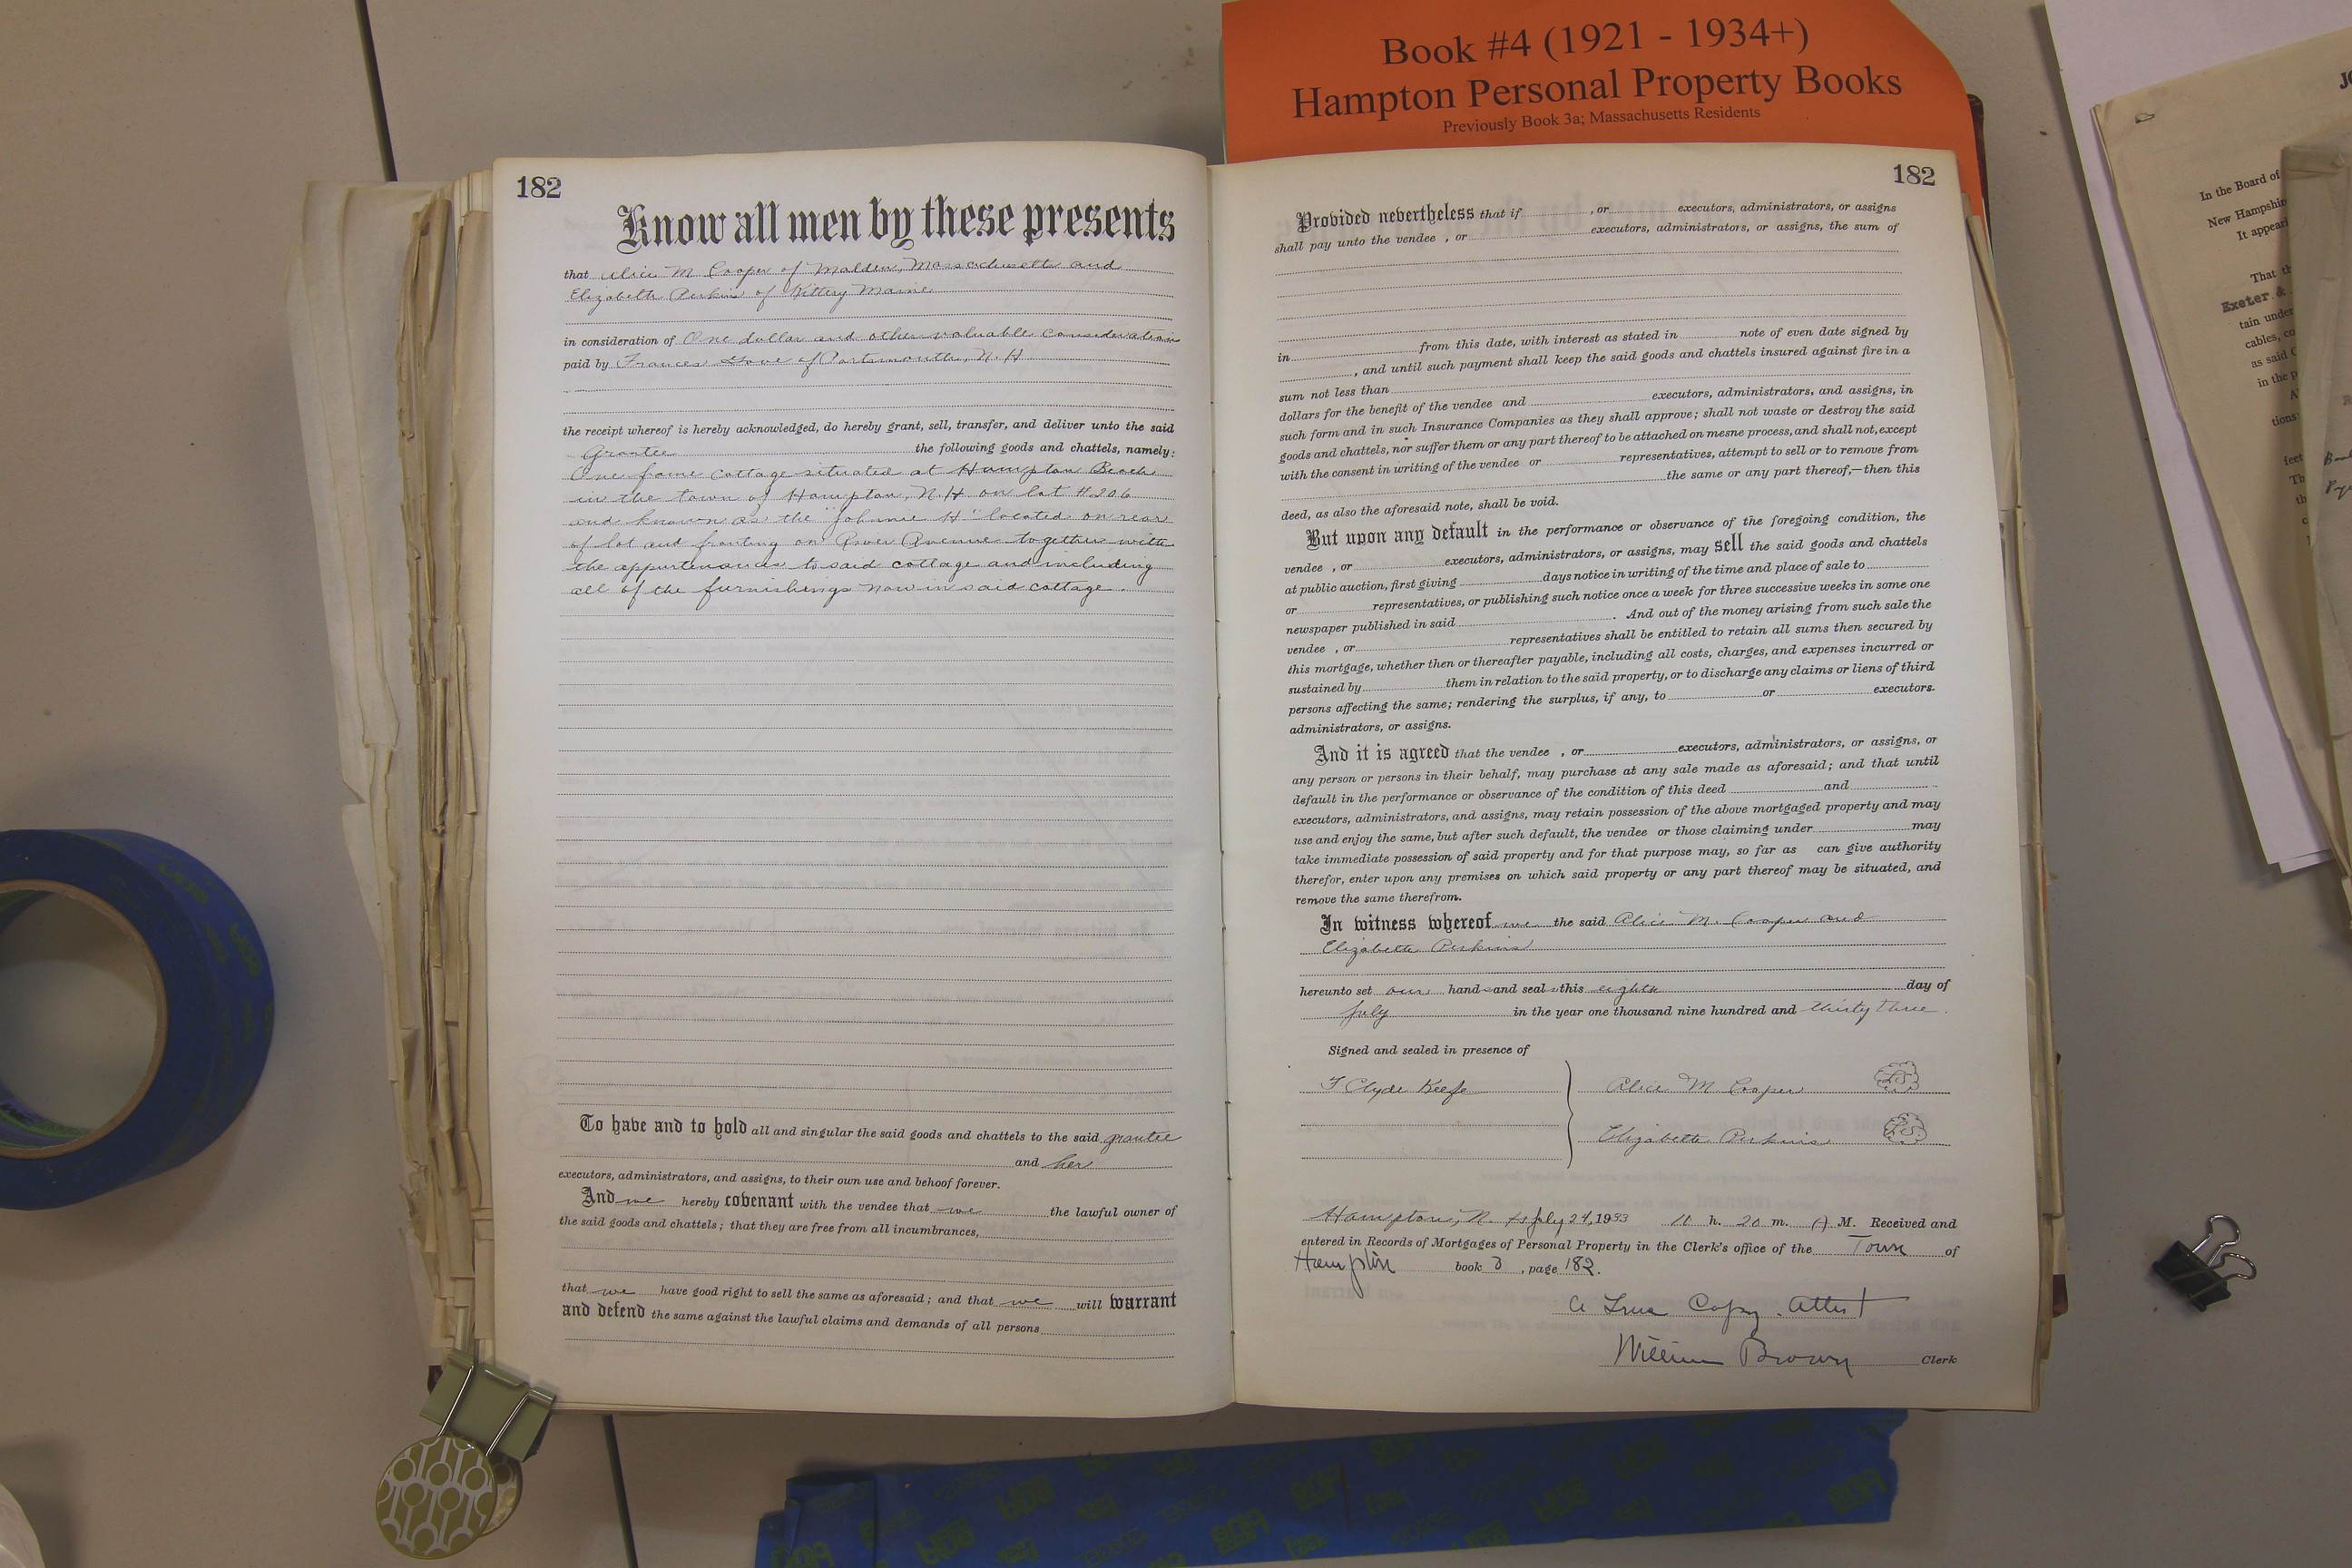 Book #4 (1921 - 1934+)
Hampton Personal Property Books
Previously Book 3a; Massachusetts Residents
182
Know all men by these presents
that Alice M Cooper of Malden, Massachusetts and
Elizabeth Perkins of Kittery Maine
in consideration of One dollar and other valuable consideration
paid by Frances Gove of Portsmouth, N.H.
the receipt whereof is hereby acknowledged, do hereby grant, sell, transfer, and deliver unto the said
Grantee the following goods and chattels, namely:
One frame cottage situated at Hampton Beach
in the town of Hampton, N.H. on lot #206
and known as the "Johnnie H" located on rear
of lot and fronting on River Avenue together with
the appurtenances to said cottage and including
all of the furnishings now in said cottage.
To have and to hold all and singular the said goods and chattels to the said grantee
and her
executors, administrators, and assigns, to their own use and behoof forever.
And we hereby covenant with the vendee that we the lawful owner of
the said goods and chattels; that they are free from all incumbrances,
that we have good right to sell the same as aforesaid; and that we will warrant
and defend the same against the lawful claims and demands of all persons
182
Provided nevertheless that if , or executors, administrators, or assigns
shall pay unto the vendee , or executors, administrators, or assigns, the sum of
in from this date, with interest as stated in note of even date signed by
, and until such payment shall keep the said goods and chattels insured against fire in a
sum not less than
dollars for the benefit of the vendee and executors, administrators, and assigns, in
such form and in such Insurance Companies as they shall approve; shall not waste or destroy the said
goods and chattels, nor suffer them or any part thereof to be attached on mesne process, and shall not, except
with the consent in writing of the vendee or representatives, attempt to sell or to remove from
the same or any part thereof,—then this
deed, as also the aforesaid note, shall be void.
But upon any default in the performance or observance of the foregoing condition, the
vendee , or executors, administrators, or assigns, may sell the said goods and chattels
at public auction, first giving days notice in writing of the time and place of sale to
or representatives, or publishing such notice once a week for three successive weeks in some one
newspaper published in said . And out of the money arising from such sale the
vendee , or representatives shall be entitled to retain all sums then secured by
this mortgage, whether then or thereafter payable, including all costs, charges, and expenses incurred or
sustained by them in relation to the said property, or to discharge any claims or liens of third
persons affecting the same; rendering the surplus, if any, to or executors.
administrators, or assigns.
And it is agreed that the vendee , or executors, administrators, or assigns, or
any person or persons in their behalf, may purchase at any sale made as aforesaid; and that until
default in the performance or observance of the condition of this deed and
executors, administrators, and assigns, may retain possession of the above mortgaged property and may
use and enjoy the same, but after such default, the vendee or those claiming under may
take immediate possession of said property and for that purpose may, so far as can give authority
therefor, enter upon any premises on which said property or any part thereof may be situated, and
remove the same therefrom.
In witness whereof we the said Alice M. Cooper and
Elizabeth Perkins
hereunto set our hands and seals this eighth day of
July in the year one thousand nine hundred and thirty three.
Signed and sealed in presence of
F Clyde Keefe Alice M Cooper LS
Elizabeth Perkins LS
Hampton, N. H July 24, 1933 11 h. 20 m. A M. Received and
entered in Records of Mortgages of Personal Property in the Clerk's office of the Town of
Hampton book 3, page 182.
A True Copy. Attest
William Brown Clerk
In the Board of
New Hampshire
It appear
That th
Exeter &
tain under
cables, co
as said C
in the p
tions
feet